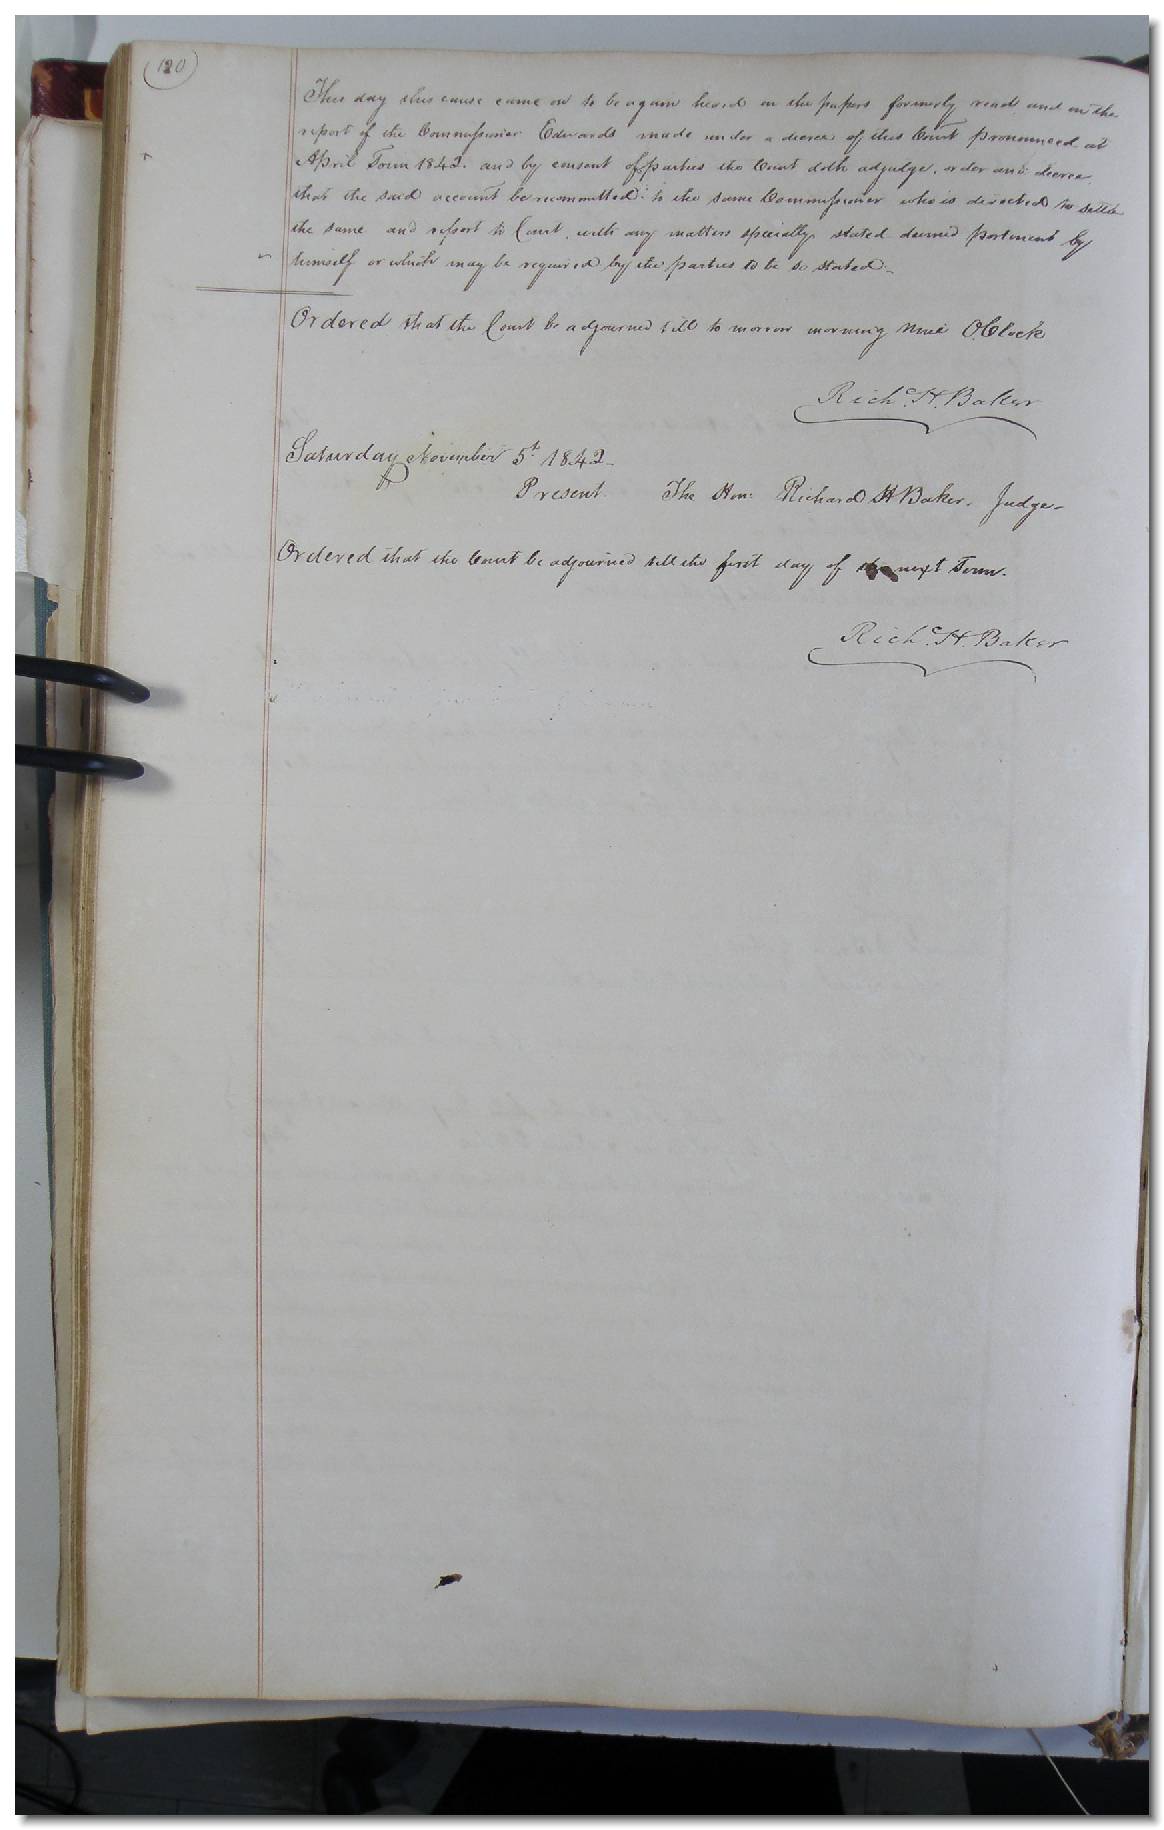 120
This day this cause came on to be again heard on the papers formerly read and on the
report of the Commissioner Edwards made under a decree of this Court pronounced at
April Term 1842. and by consent of parties the Court doth adjudge, order and decree
that the said account be recommitted to the same Commissioner who is directed to settle
the same and report to Court, with any matters specially stated deemed pertinent by
himself or which may be required by the parties to be so stated.
Ordered that the Court be adjourned till to morrow morning Nine O.Clock
Richd. H. Baker
Saturday November 5th 1842.
Present The Hon: Richard H Baker, Judge.
Ordered that the Court be adjourned till the first day of the next Term.
Richd. H. Baker